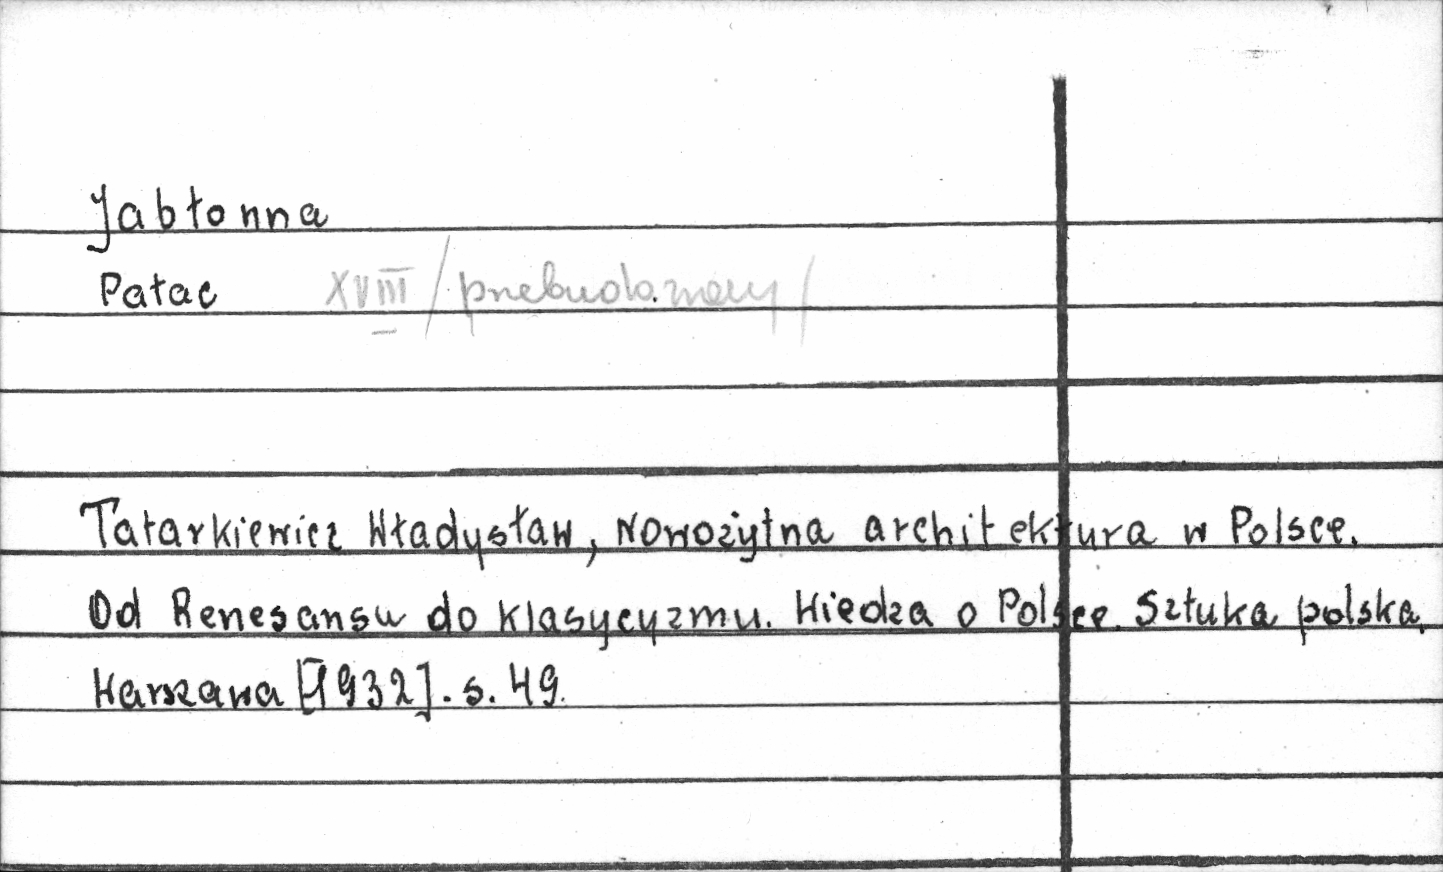 Jabłonna
Pałac XVIII /przebudowany/
Tatarkiewicz Władysław, Nowożytna architektura w Polsce.
Od Renesansu do klasycyzmu. Wiedza o Polsce. Sztuka polska.
Warszawa [1932]. s. 49.